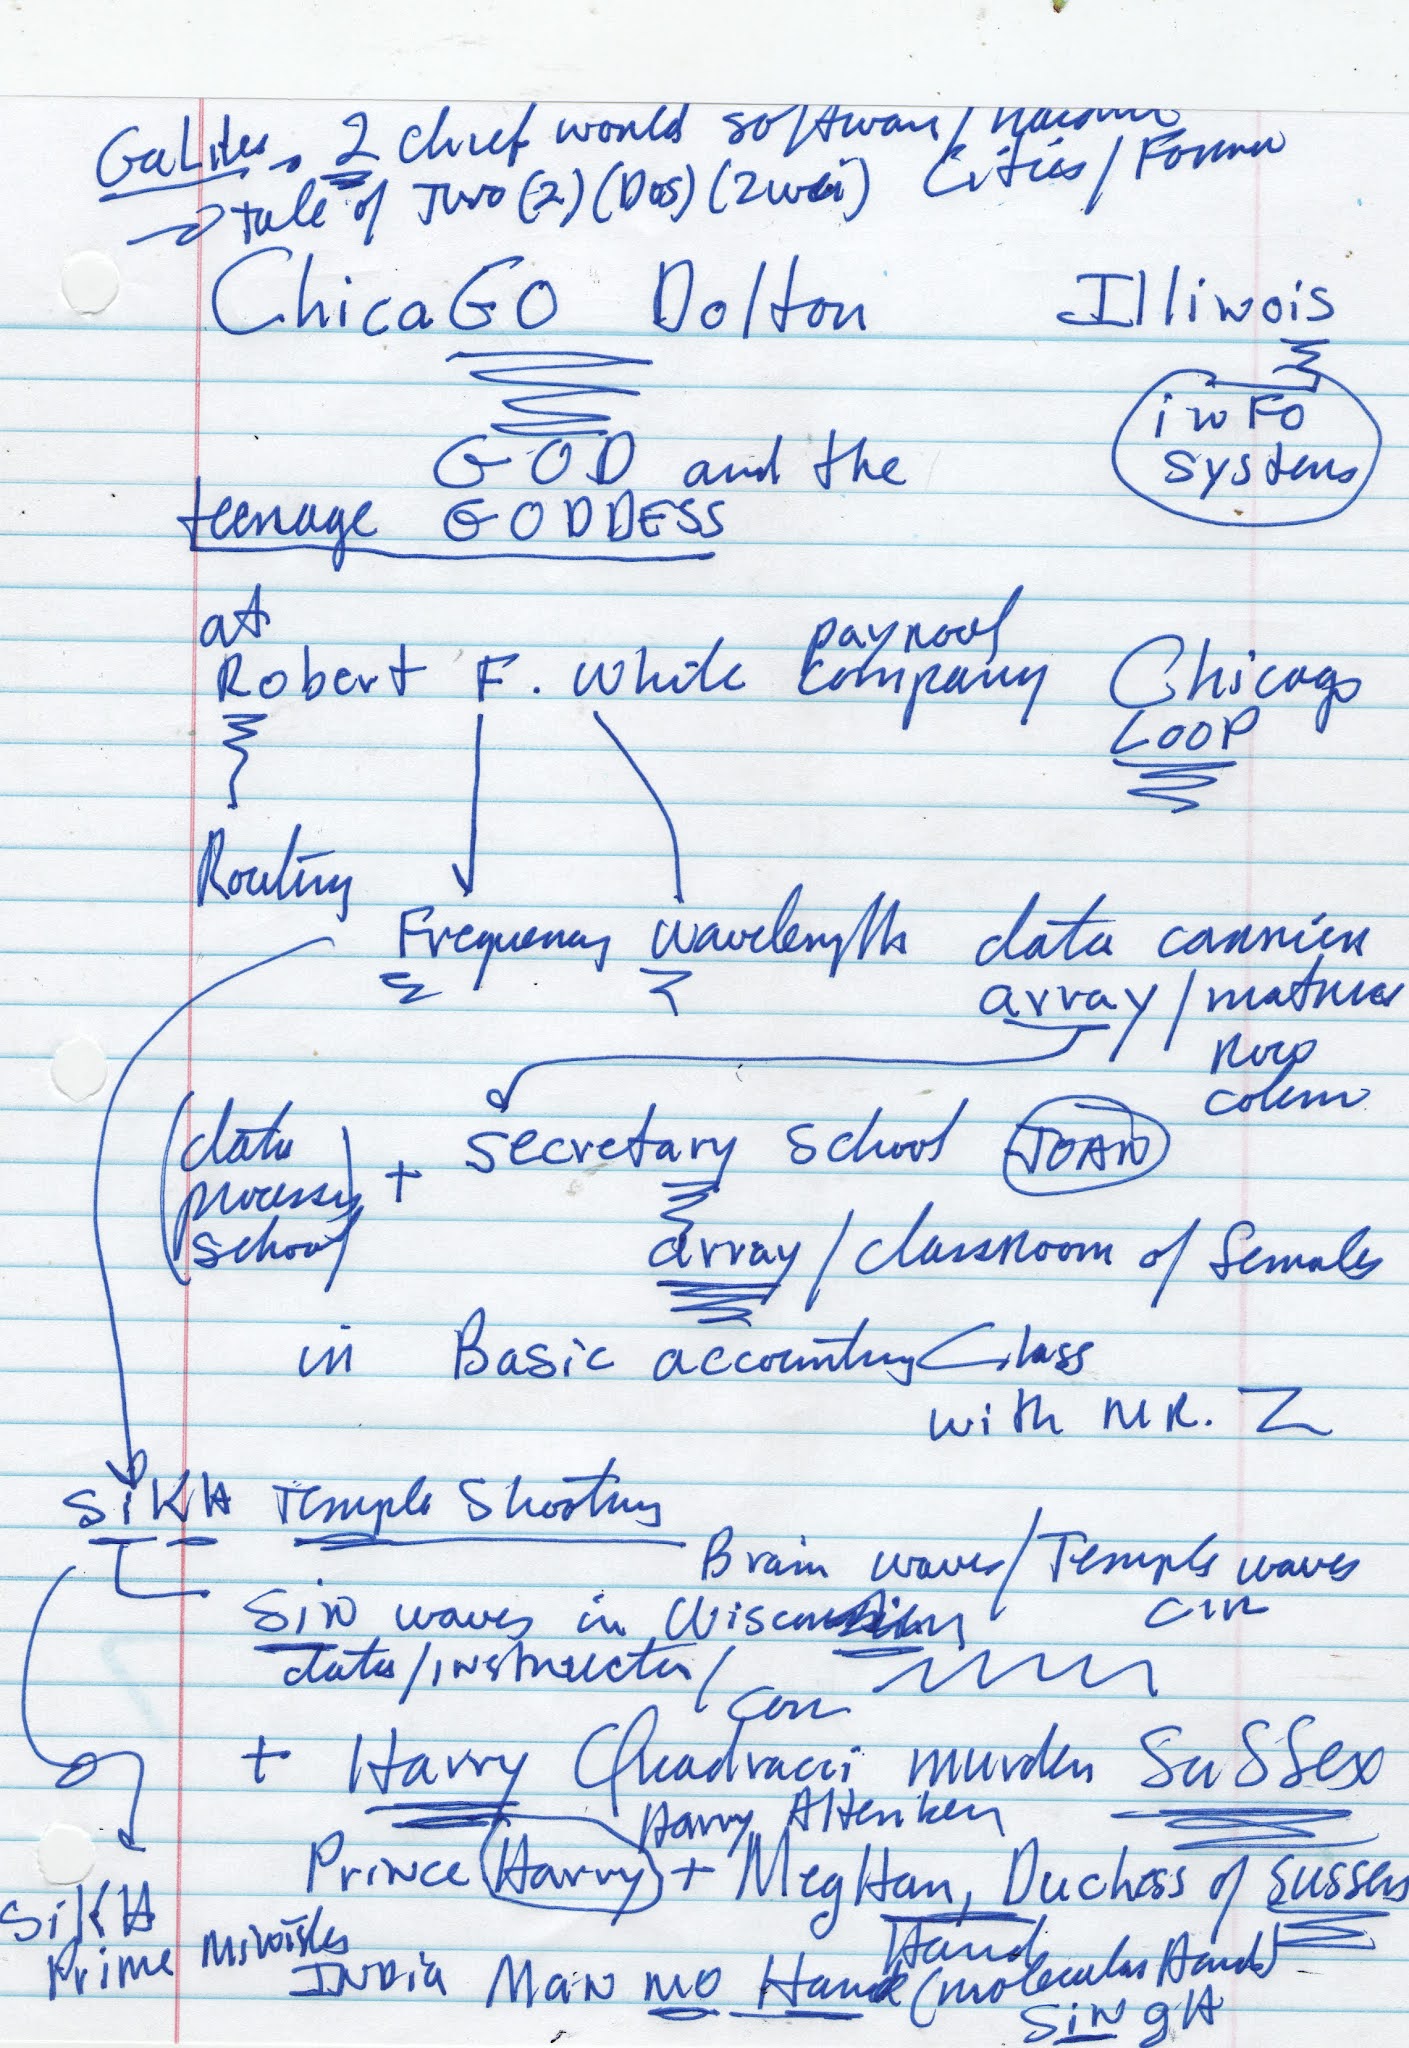 GaLites 2 chief world software /
→ tale of Two (2) (Dos) (Zwei) Cities / Former
ChicaGO Dolton Illinois
info
systems
GOD and the
teenage GODDESS
at
Robert F. White payroll company Chicago
LOOP
Routing
Frequency wavelength data carrier
array / matrices
row
column
(data processing school) + secretary school JOAN
array / classroom of females
in Basic accounting Class
with MR. Z
SiKH Temple Shooting
Brain waves / Temple waves
Sin waves in Wisconsin
data / instructor /
+ Harry Quadracci murder SuSSex
Harry Altenken
Prince Harry + MegHan, Duchess of Sussex
Hand
SiKH
Prime Minister
INDia Man MO Hand (molecular Hand)
SiNgH